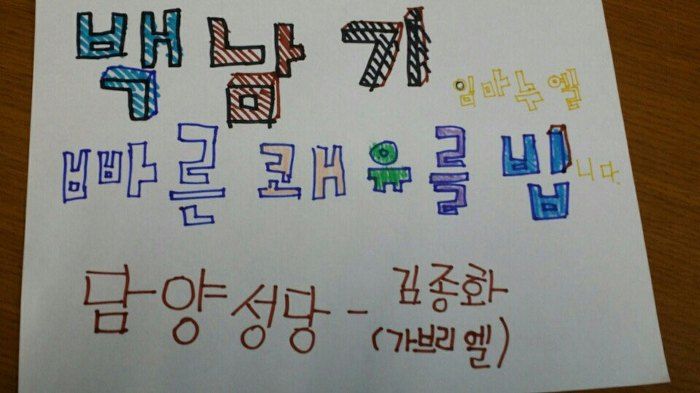 백남기 임마누엘
빠른 쾌유를 빕니다
담양성당 - 김종화
(가브리엘)